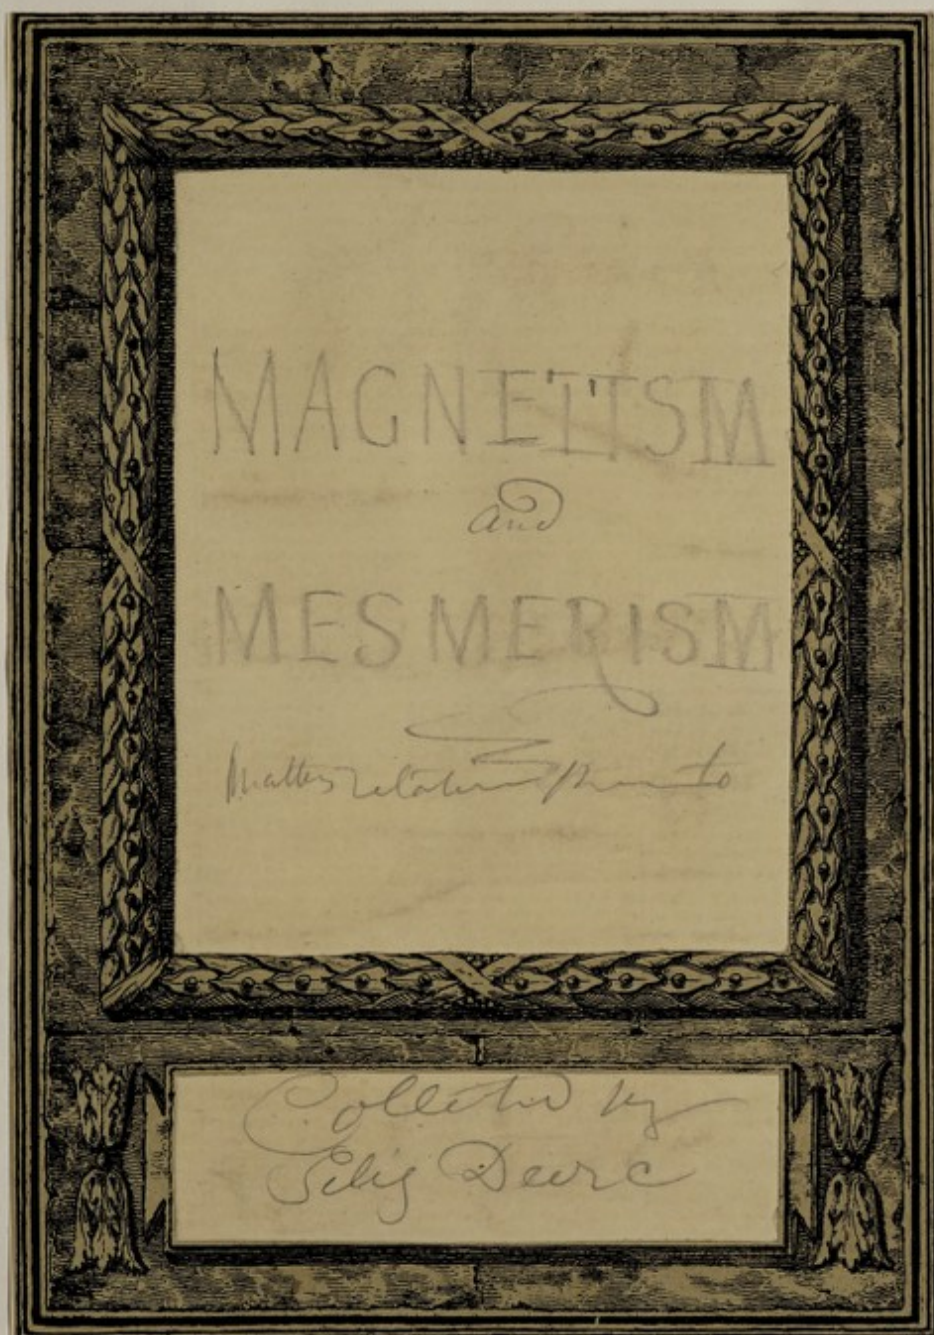 MAGNETISM
and
MESMERISM
Matters relative to
Collected by